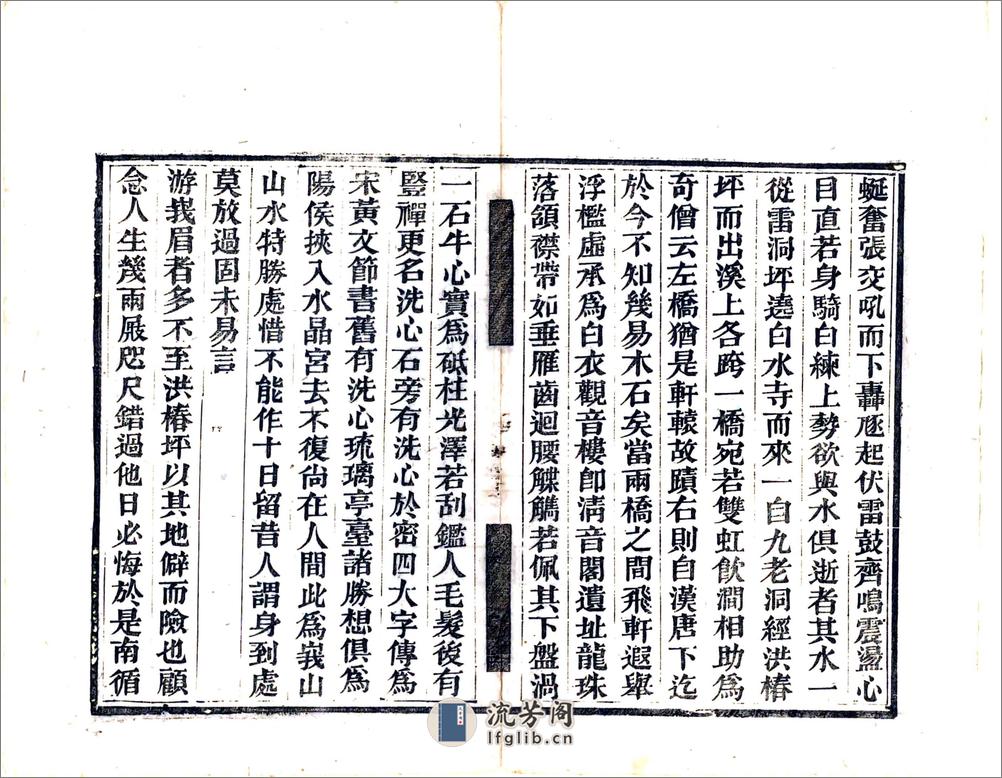 蜒奮張交吼而下轟豗起伏雷鼓齊鳴震盪心
目直若身騎白練上勢欲與水俱逝者其水一
從雷洞坪遶白水寺而來一自九老洞經洪椿
坪而出溪上各跨一橋宛若雙虹飲澗相助爲
奇僧云左橋猶是軒轅故蹟右則自漢唐下迄
於今不知幾易木石矣當兩橋之間飛軒遐舉
浮檻虛承爲白衣觀音樓卽淸音閣遺址龍珠
落頷襟帶如垂雁齒迴腰觿觹若佩其下盤渦
一石牛心實爲砥柱光澤若刮鑑人毛髮後有
豎禪更名洗心石旁有洗心於密四大字傳爲
宋黃文節書舊有洗心琉璃亭臺諸勝想俱爲
陽侯挾入水晶宮去不復尙在人間此爲峩山
山水特勝處惜不能作十日留昔人謂身到處
莫放過固未易言
游峩眉者多不至洪椿坪以其地僻而險也顧
念人生幾兩屐咫尺錯過他日必悔於是南循
流芳阁
lfglib.cn